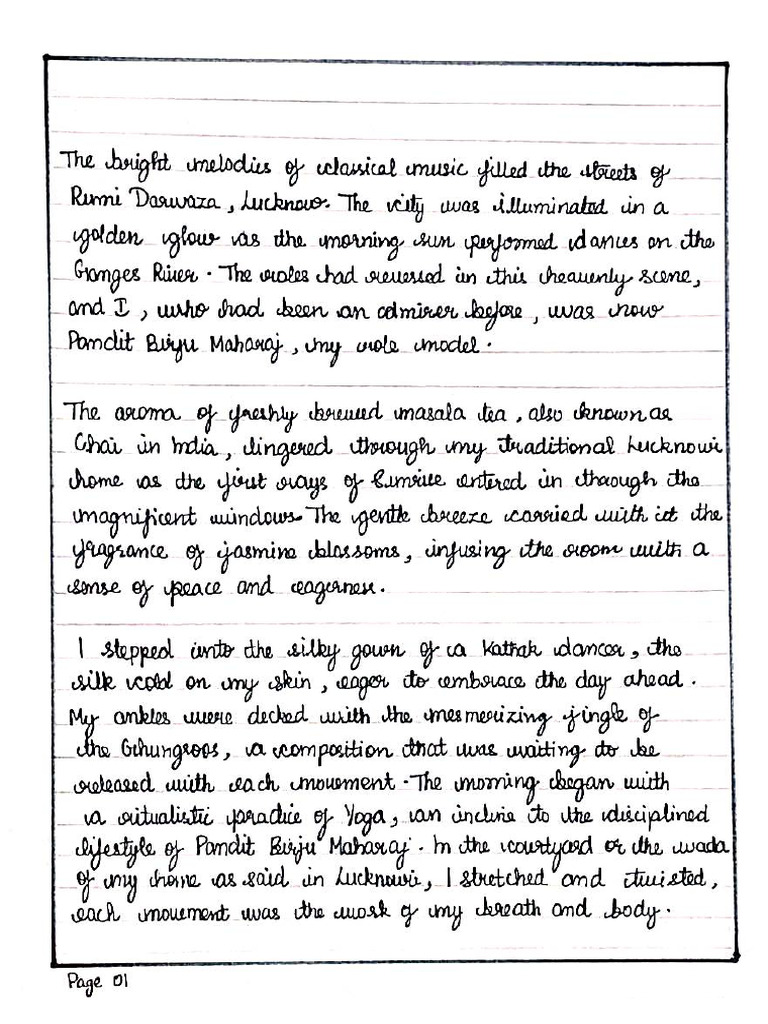 The bright melodies of classical music filled the streets of
Rumi Darwaza, Lucknow. The city was illuminated in a
golden glow as the morning sun performed dances on the
Ganges River. The roles had reversed in this heavenly scene,
and I, who had been an admirer before, was now
Pandit Birju Maharaj, my role model.
The aroma of freshly brewed masala tea, also known as
Chai in India, lingered through my traditional Lucknowi
home as the first rays of Sunrise entered in through the
magnificent windows. The gentle breeze carried with it the
fragrance of jasmine blossoms, infusing the room with a
sense of peace and eagerness.
I stepped into the silky gown of a Kathak dancer, the
silk cold on my skin, eager to embrace the day ahead.
My ankles were decked with the mesmerizing jingle of
the Ghungroos, a composition that was waiting to be
released with each movement. The morning began with
a ritualistic practice of Yoga, an incline to the disciplined
lifestyle of Pandit Birju Maharaj. In the courtyard or the wada
of my home as said in Lucknowi, I stretched and twisted,
each movement was the work of my breath and body.
Page 01